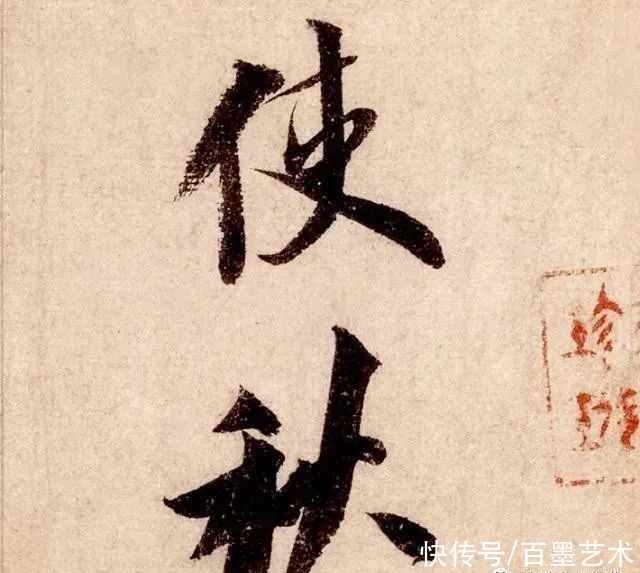 使
秋
珍
快传号/百墨艺术